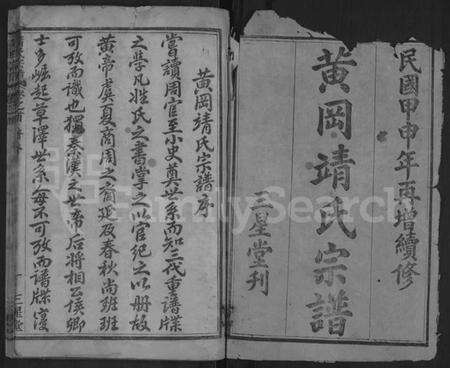 民國甲申年再增續修
黃岡靖氏宗譜
三星堂刊
黃岡靖氏宗譜序
嘗讀周官至小史奠世系而知三代重譜牒
之學凡姓氏之書掌之以官紀之以册故
黃帝虞夏商周之裔延及春秋尚班班
可攷而識也獨秦漢之世帝后將相公侯卿
士多崛起草澤世系人每不可攷而譜牒寖
三星堂
FamilySearch